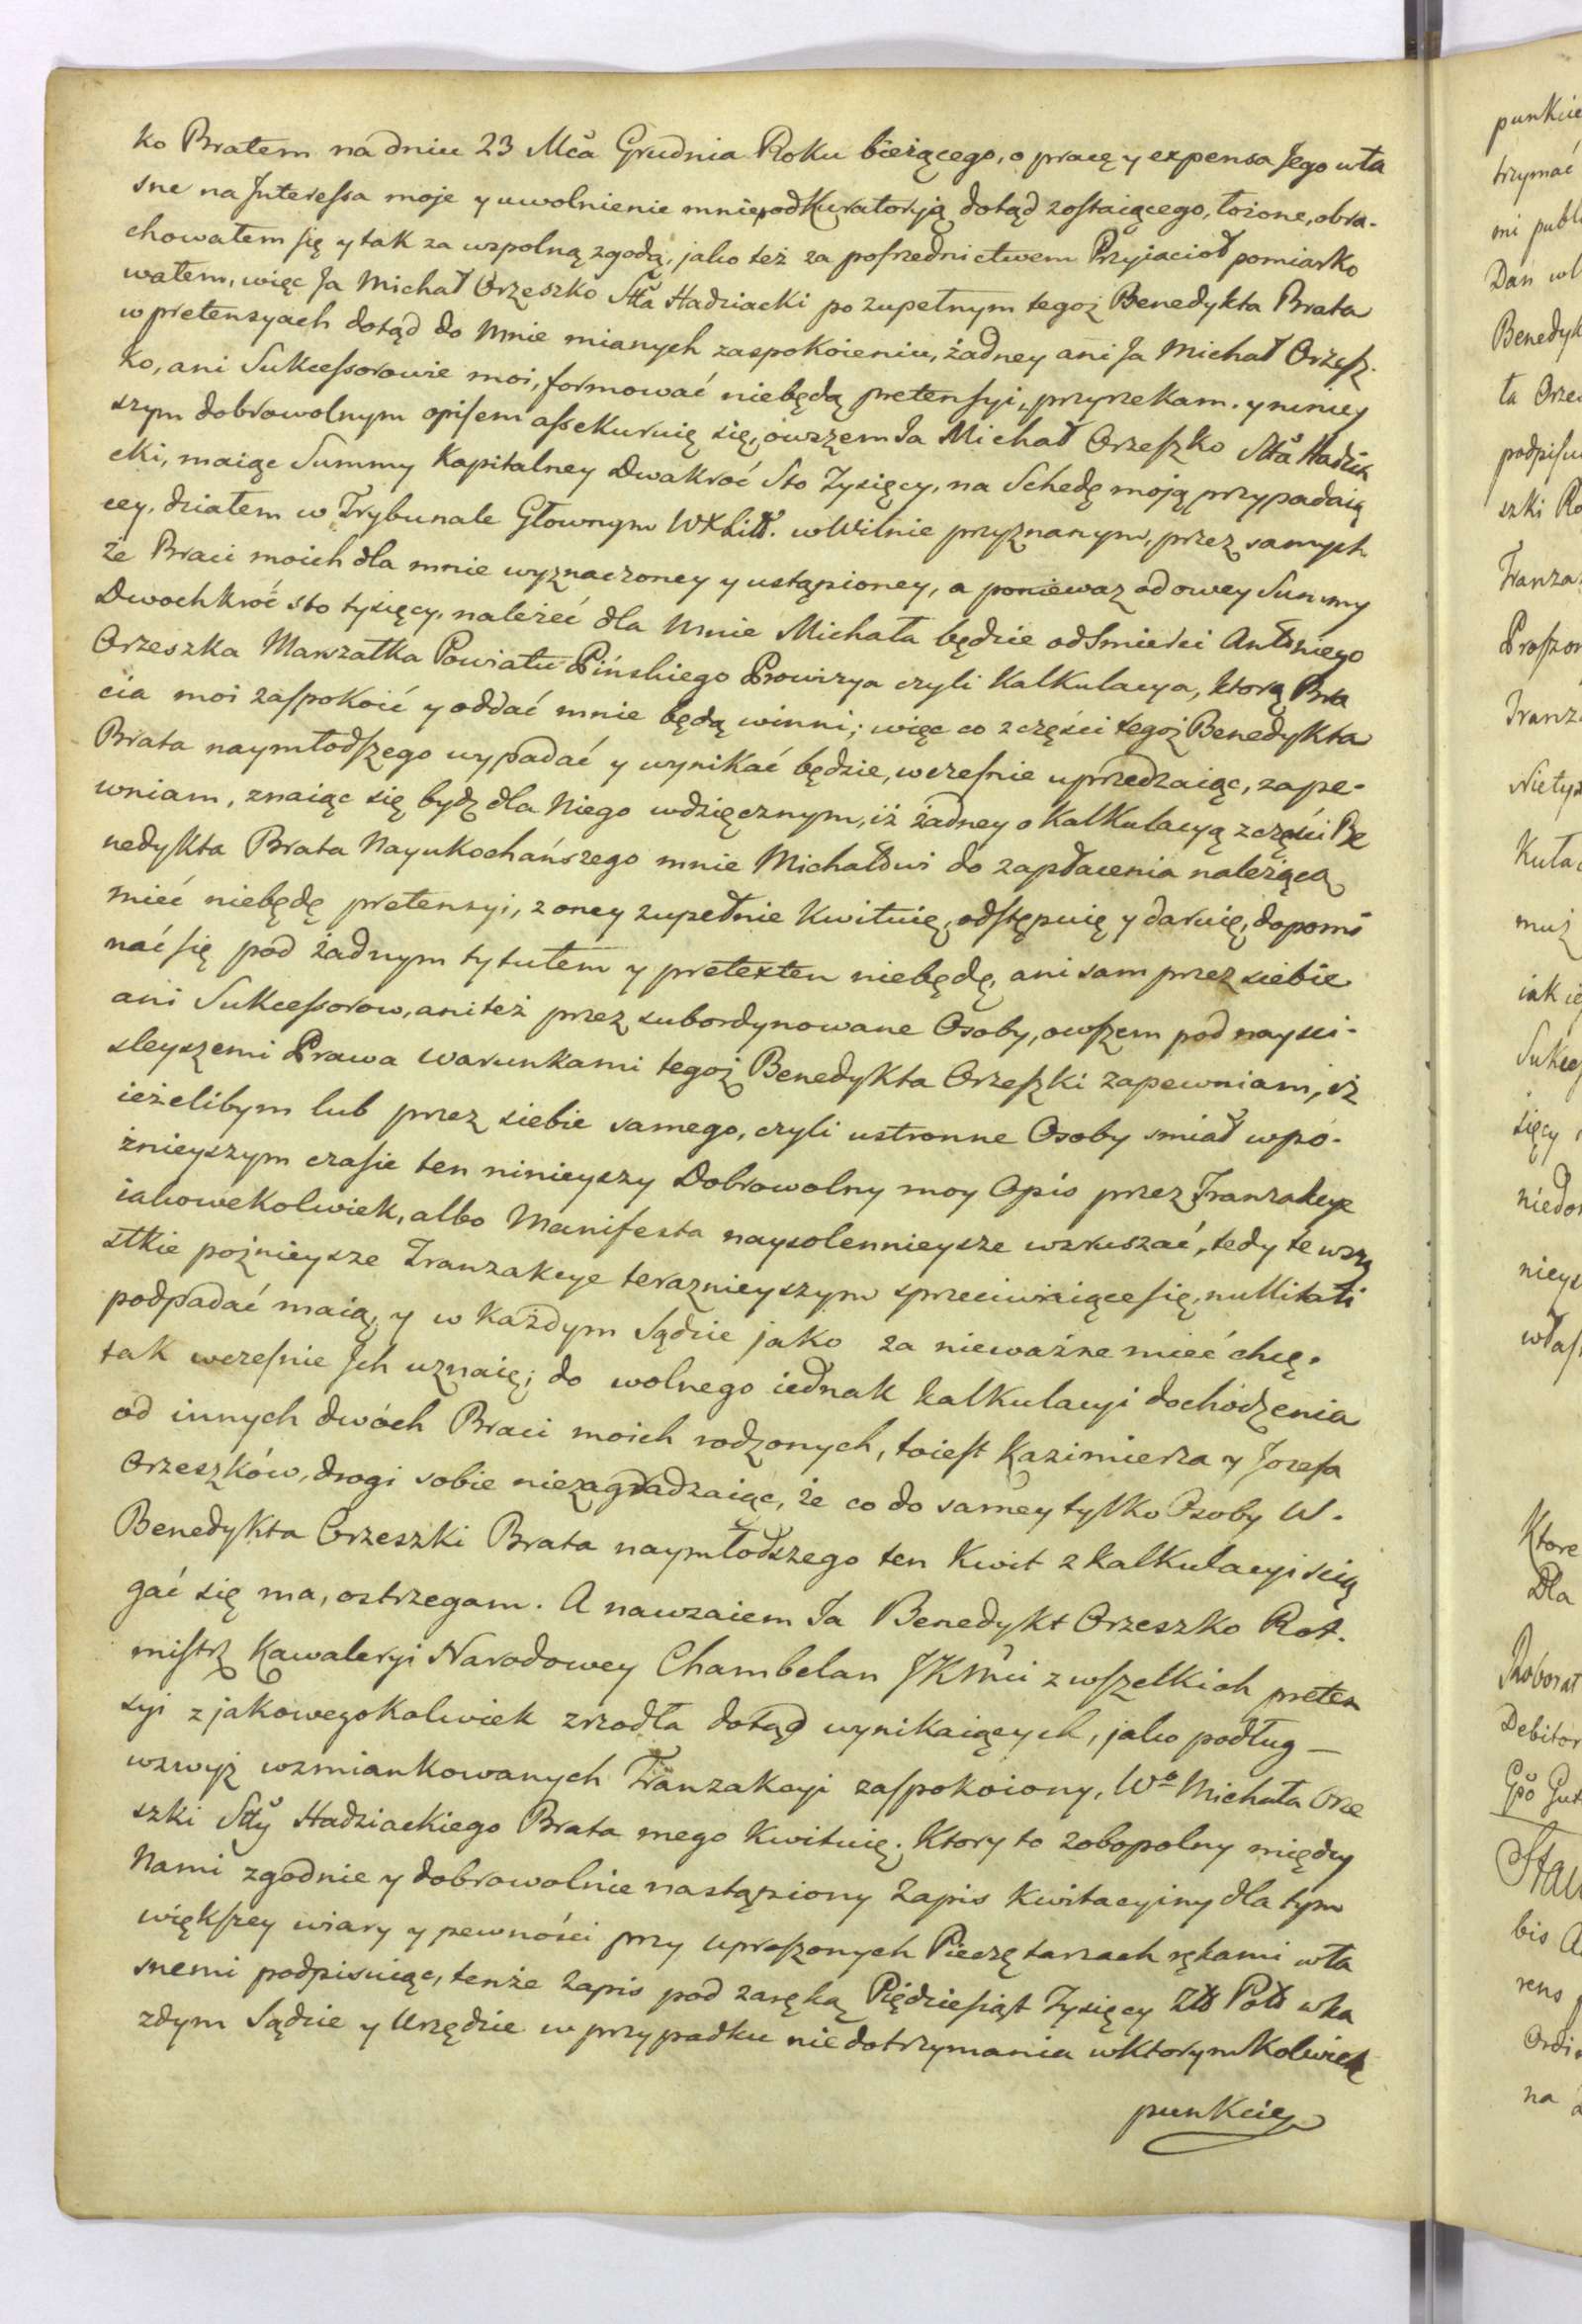 ko Bratem na dniu 23 Mca Grudnia Roku bieżącego, o pracę y expensa Jego wła
sne na Interessa moje y uwolnienie mnie, pod Kuratoryją dotąd zostaiącego, łożone, obra-
chowałem się y tak za wspolną zgodą, jako też za posrzednictwem Przyiacioł pomiarko
wałem, więc Ja Michał Orzeszko Stta Hadziacki po zupełnym tegoż Benedykta Brata
w pretensyach dotąd do mnie mianych zaspokoieniu, żadney ani Ja Michał Orzesz-
ko, ani Sukcessorowie moi, formować niebędą pretensyi, przyrzekam. y niniey
szym dobrowolnym opisem assekuruię się, owszem Ja Michał Orzeszko Stta Hadzia
cki, maiąc Summy Kapitalney Dwakroć Sto Tysięcy, na Schedę moją przypadaią
cey, działem w Trybunale Głownym WXLitt. w Wilnie przyznanym, przez samych
że Braci moich dla mnie wyznaczoney y ustąpioney, a ponieważ od owey Summy
Dwochkroć sto tysięcy, należeć dla mnie Michała będzie od Smierci Antoniego
Orzeszka Marszałka Powiatu Pińskiego Prowizya czyli Kalkulacya, ktorą Bra
cia moi zaspokoić y oddać mnie będą winni; więc co z części tegoż Benedykta
Brata naymłodszego wypadać y wynikać będzie, wczesnie uprzedzaiąc, zape-
wniam, znaiąc się bydź dla Niego wdzięcznym, iż żadney o Kalkulacyą z części Be
nedykta Brata Nayukochańszego mnie Michałowi do zapłacenia należącą
mieć niebędę pretensyi, z oney zupełnie Kwituię, odstępuię y daruię, dopomi
nać się pod żadnym tytułem y pretexten niebędę, ani sam przez siebie
ani Sukcessorow, ani też przez subordynowane Osoby, owszem pod naysci-
sleyszemi Prawa warunkami tegoż Benedykta Orzeszki zapewniam, iż
ieżelibym lub przez siebie samego, czyli ustronne Osoby smiał w pó-
żnieyszym czasie ten ninieyszy Dobrowolny moy Opis przez Tranzakcye
iakowekolwiek, albo Manifesta naysolennieysze wzruszać, tedy te wszy
stkie poźnieysze Tranzakcye teraznieyszym sprzeciwiaiące się, nullitati
podpadać maią, y w każdym Sądzie jako za nieważne mieć chcę.
tak wczesnie Ich uznaię; do wolnego iednak kalkulacyi dochodzenia
od innych dwóch Braci moich rodzonych, toiest Kazimierza y Jozefa
Orzeszków, drogi sobie niezagradzaiąc, że co do samey tylko Osoby W.
Benedykta Orzeszki Brata naymłodszego ten Kwit z kalkulacyi ścią
gać się ma, ostrzegam. A nawzaiem Ja Benedykt Orzeszko Rot-
mistrz Kawaleryi Narodowey Chambelan JKMci z wszelkich preten
syi z jakowegokolwiek zrzodła dotąd wynikaiących, jako podług —
wzwyż wzmiankowanych Tranzakcyi zaspokoiony, Wo Michała Orze
szki Stty Hadziackiego Brata mego Kwituię. Ktory to zobopolny między
Nami zgodnie y dobrowolnie nastąpiony Zapis Kwitacyiny dla tym
większey wiary y pewności przy uproszonych Pieczętarzach rękami wła
snemi podpisuiąc, tenże Zapis pod zaręką Pięćdziesiąt Tysięcy Złł Poll w ka
zdym Sądzie y Urzędzie w przypadku niedotrzymania w ktorymkolwiek
punkcie